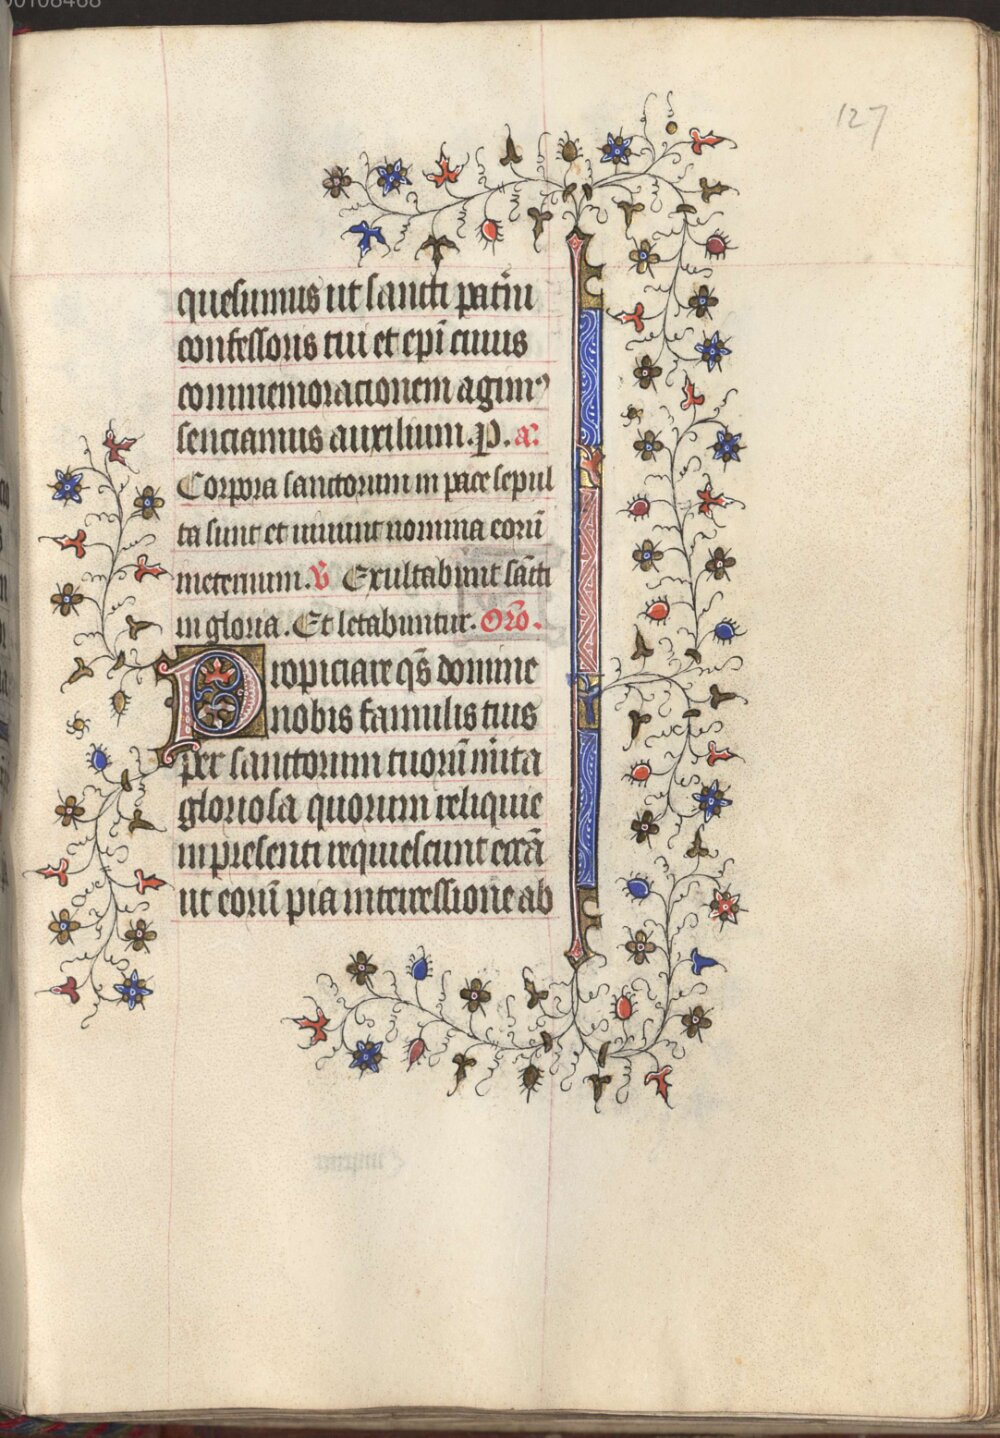 127
quesumus ut sancti patr̄ni
confessoris tui et ep̄i cuius
commemoracionem agimꝰ
senciamus auxilium. P. a:
Corpora sanctorum in pace sepul
ta sunt et uiuunt nomina eorū
ineternum. V̄ Exultabunt sāti
in gloria. Et letabuntur. Or̄o.
Propiciare q̄s domine
nobis famulis tuis
per sanctorum tuorū mīta
gloriosa quorum reliquie
in presenti requiescunt eccā
ut eorū pia intercessione ab